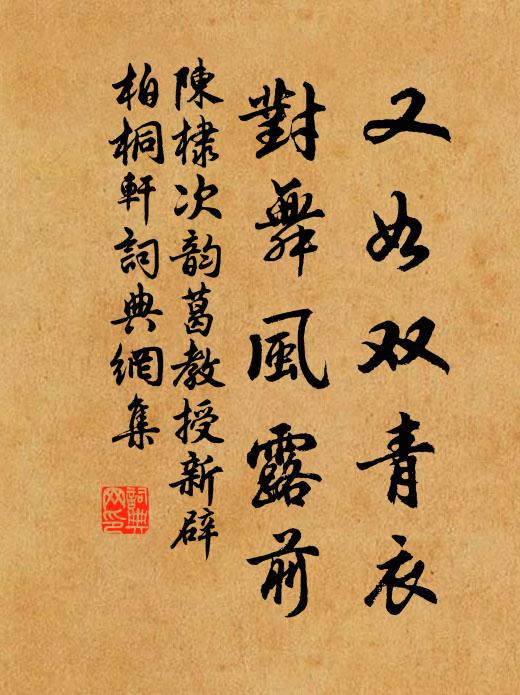 又如双青衣
對舞風露前
陳棣次韵葛教授新辟
柏桐軒詞典網集
詞典网印